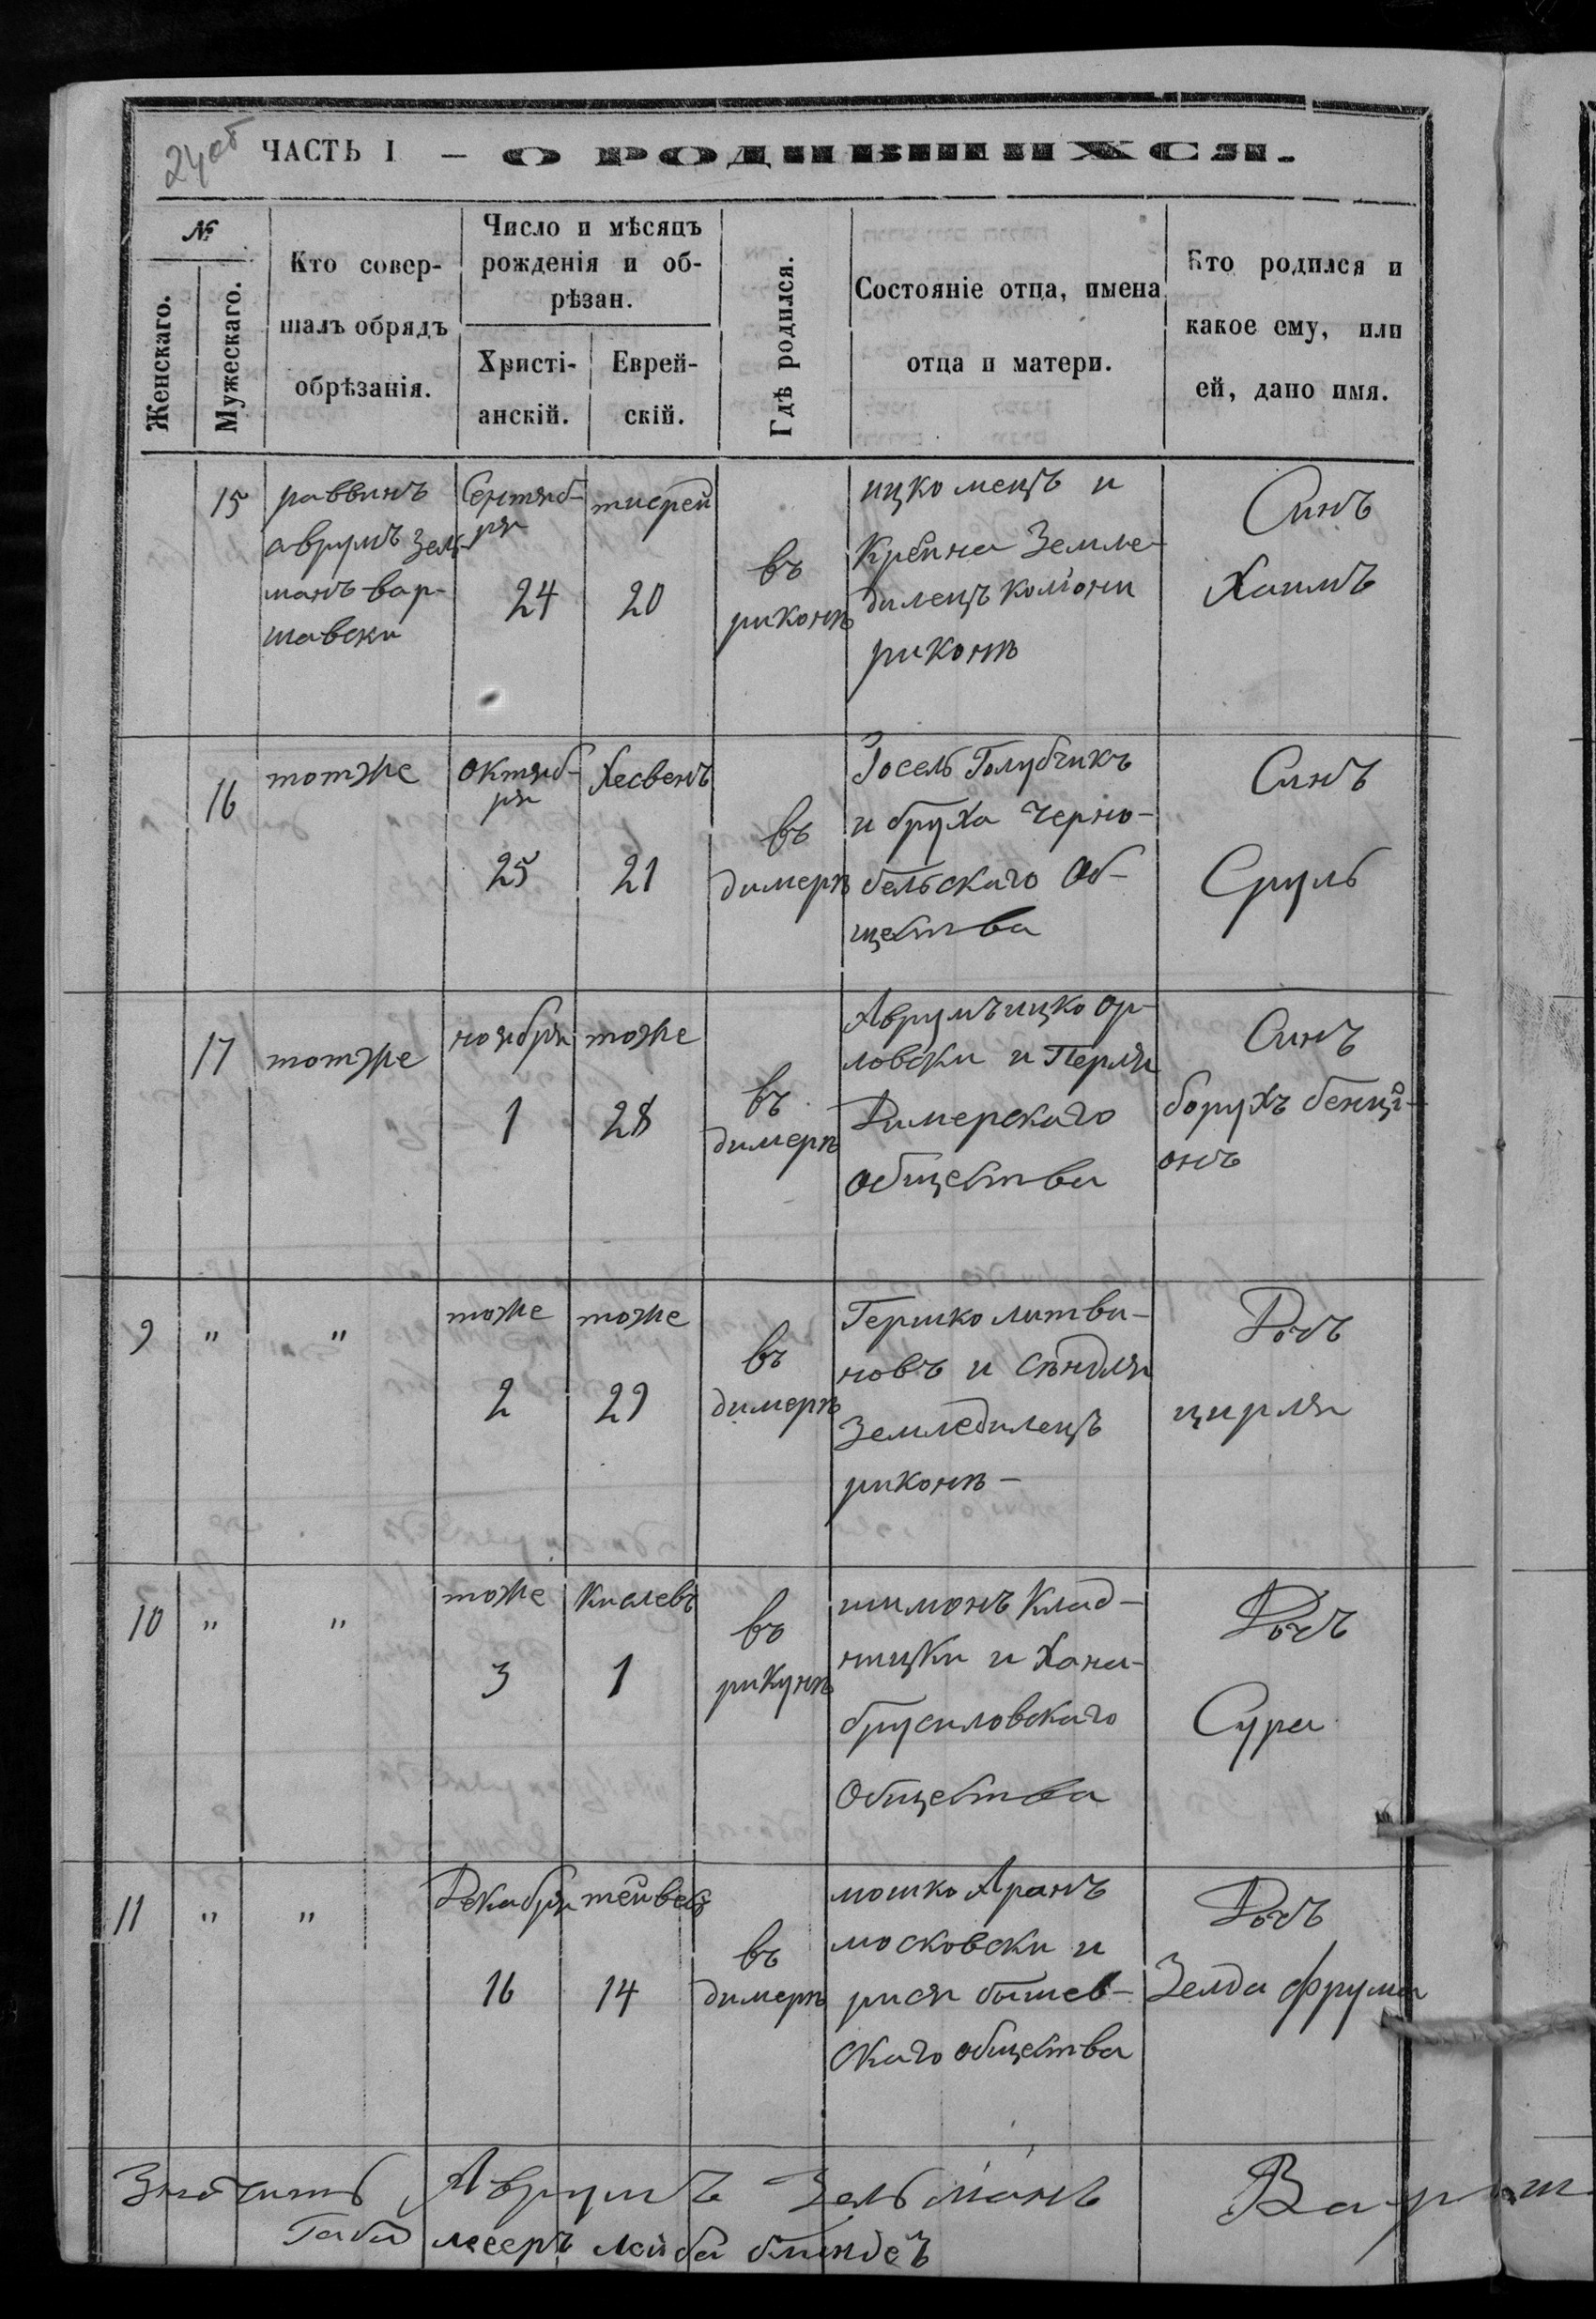 24 об
ЧАСТЬ I — О РОДИВШИХСЯ.
№
Женскаго.
Мужескаго.
Кто совер-
шалъ обрядъ
обрѣзанія.
Число и мѣсяцъ
рожденія и об-
рѣзан.
Христі-
анскій.
Еврей-
скій.
Гдѣ родился.
Состояніе отца, имена
отца и матери.
Кто родился и
какое ему, или
ей, дано имя.
15
раввинъ
аврумъ Зель
манъ вар-
шавски
Сентяб-
ря
24
тисрей
20
въ
риконѣ
ицко мецъ и
Крейна Земле-
дилецъ колони
риконѣ
Синъ
Хаимъ
16
тотже
октяб-
ря
25
Хесвенъ
21
въ
димерѣ
Іосель Голубчикъ
и бруха Черно-
бельскаго Об-
щества
Синъ
Сруль
17
тотже
ноября
1
тоже
28
въ
димерѣ
Аврумъ ицко ор-
ловски и Перля
Димерскаго
общества
Синъ
борухъ бенці-
онъ
9 " "
тоже
2
тоже
29
въ
димерѣ
Гершко литви-
новъ и Сѣндля
Земледилецъ
риконѣ -
Дочъ
цирля
10 " "
тоже
3
Кислевъ
1
въ
рикунѣ
шимонъ Клад-
ницки и Хана-
брусиловскаго
Общества
Дочъ
Сура
11 " "
Декабря
16
тейвесъ
14
въ
димерѣ
мошко Аранъ
московски и
рися бышев-
скаго общества
Дочъ
Зелда фрума
Аврумъ Зельманъ Варш
Габа лейба